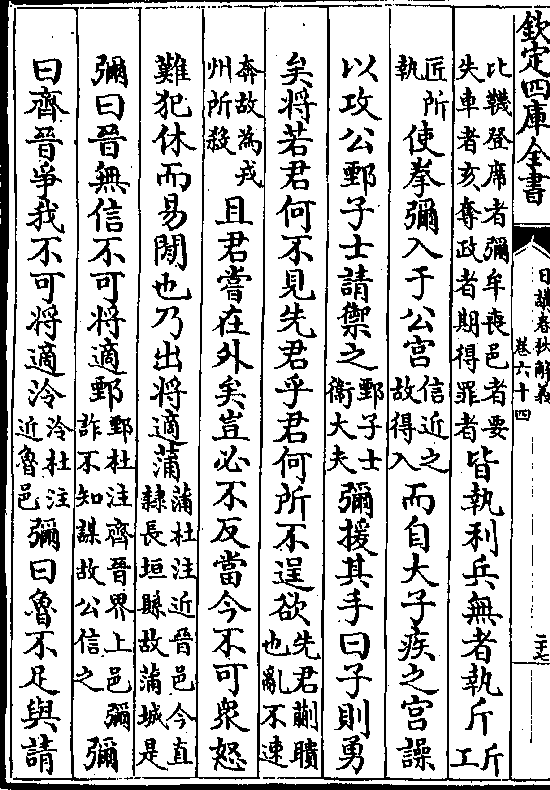 欽定四庫全書
日講春秋解義
卷六十四
二十七
比韈登席者彌牟喪邑者要
失車者亥奪政者期得罪者
皆執利兵無者執斤
斤工
匠所
執
使拳彌入于公宮
信近之
故得入
而自大子疾之宮譟
以攻公鄄子士請禦之
鄄子士
衞大夫
彌援其手曰子則勇
矣將若君何不見先君乎君何所不逞欲
先君蒯聵
也亂不速
奔故為戎
州所殺
且君嘗在外矣豈必不反當今不可衆怒
難犯休而易閒也乃出將適蒲
蒲杜注近晉邑今直
隸長垣縣故蒲城是
彌曰晉無信不可將適鄄
鄄杜注齊晉界上邑彌
詐不知謀故公信之
彌
曰齊晉爭我不可將適泠
泠杜注
近魯邑
彌曰魯不足與請